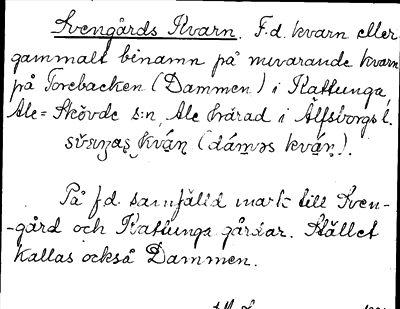 Svengårds Kvarn. F.d. kvarn eller
gammalt binamn på nuvarande kvarn
på Torebacken (Dammen) i Kattunga,
Ale-Skövde s:n, Ale härad i Älfsborgs l.
kván (dámǝs kván).
På f.d. samfälld mark till Sven-
-gård och Kattunga gårdar. Stället
kallas också Dammen.